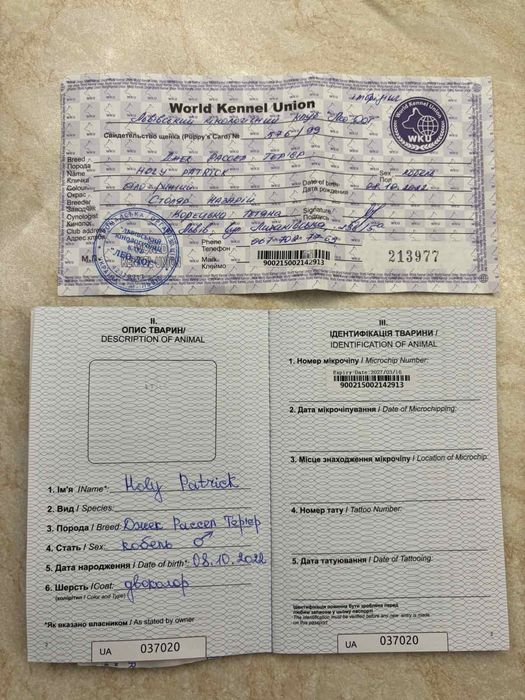 World Kennel Union
Львівський кінологічний клуб Лео-Дог
Свидетельство щенка (Puppy's Card) №
WKU
Breed
Порода
Джек Рассел Тер'єр
Name
Кличка
HOLY PATRICK
Sex
Пол
кобель
Colour
Окрас
біло-рудий
Date of birth
Дата рождения
08.10.2022
Breeder
Заводчик
Столяр Назарій
Cynologist
Кинолог
Тетяна
Signature
Подпись
Club address
Адрес клуба
Львів вул
Phone
Телефон
М.П.
Mark.
Клеймо
900215002142913
213977
ЛЕО-ДОГ
II.
ОПИС ТВАРИН/
DESCRIPTION OF ANIMAL
1. Ім'я /Name*: Holy Patrick
2. Вид / Species:
3. Порода / Breed: Джек Рассел Тер'єр
4. Стать / Sex: кобель ♂
5. Дата народження / Date of birth*: 08.10.2022
6. Шерсть /Coat: двоколор
(колір/тип / Color and Type)
*Як вказано власником / As stated by owner
UA 037020
III.
ІДЕНТИФІКАЦІЯ ТВАРИНИ /
IDENTIFICATION OF ANIMAL
1. Номер мікрочіпу / Microchip Number:
Expiry Date:2027/03/16
900215002142913
2. Дата мікрочіпування / Date of Microchipping:
3. Місце знаходження мікрочіпу / Location of Microchip:
4. Номер тату / Tattoo Number:
5. Дата татуювання / Date of Tattooing:
Ідентифікація повинна бути зроблена перед
любим записом у цьому паспорті.
The identification must be verified before any new entry is made
on this passport
UA 037020